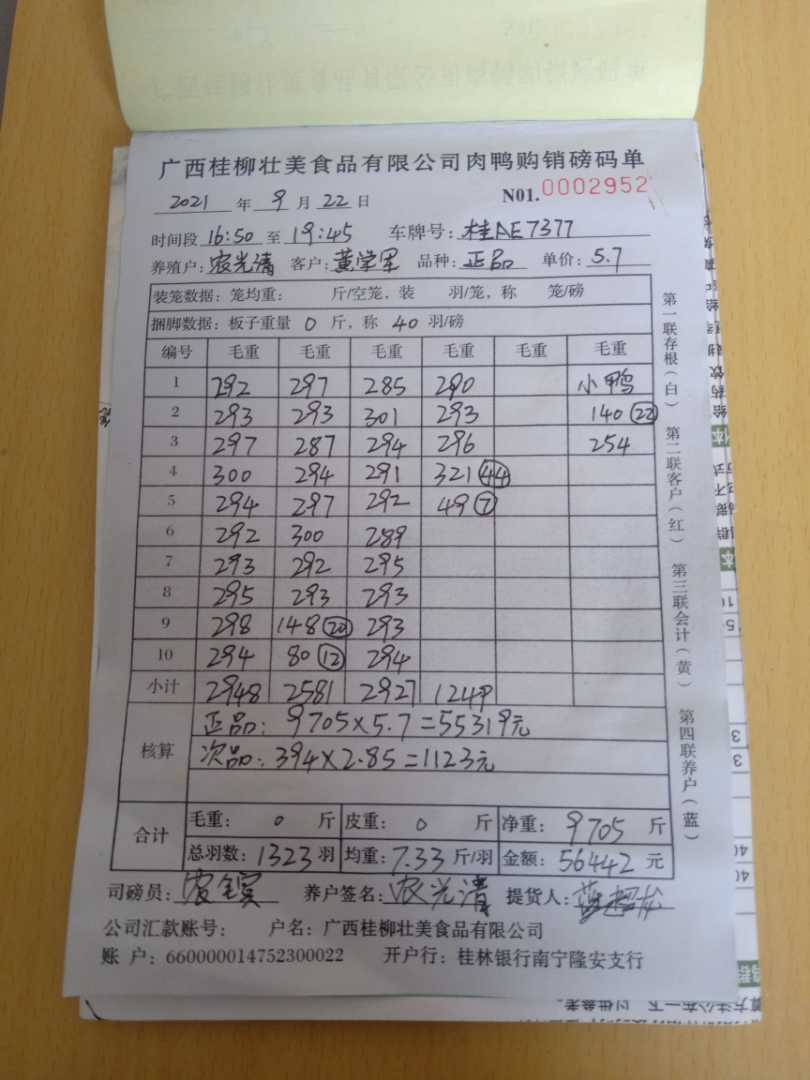 广西桂柳壮美食品有限公司肉鸭购销磅码单
2021 年 9 月 22 日 N01.0002952
时间段 16:50 至 19:45 车牌号: 桂AE7377
养殖户: 农光清 客户: 黄学军 品种: 正品 单价: 5.7
装笼数据: 笼均重: 斤/空笼, 装 羽/笼, 称 笼/磅
捆脚数据: 板子重量 0 斤, 称 40 羽/磅
编号 毛重 毛重 毛重 毛重 毛重 毛重
1 292 297 285 290 小鸭
2 293 293 301 293 140 (22)
3 297 287 294 296 254
4 300 294 291 321 (44)
5 294 297 292 49 (7)
6 292 300 289
7 293 292 295
8 295 293 293
9 298 148 (20) 293
10 294 80 (12) 294
小计 2948 2581 2927 1249
核算
正品: 9705×5.7=55319元
次品: 394×2.85=1123元
合计
毛重: 0 斤 皮重: 0 斤 净重: 9705 斤
总羽数: 1323 羽 均重: 7.33 斤/羽 金额: 56442 元
司磅员: 养户签名: 农光清 提货人:
公司汇款账号: 户名: 广西桂柳壮美食品有限公司
账 户: 660000014752300022 开户行: 桂林银行南宁隆安支行
第一联存根(白) 第二联客户(红) 第三联会计(黄) 第四联养户(蓝)